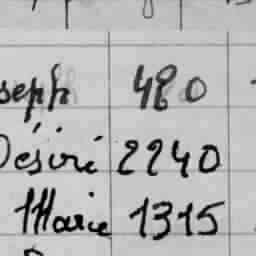 seph 480
Désiré 2240
Marie 1315